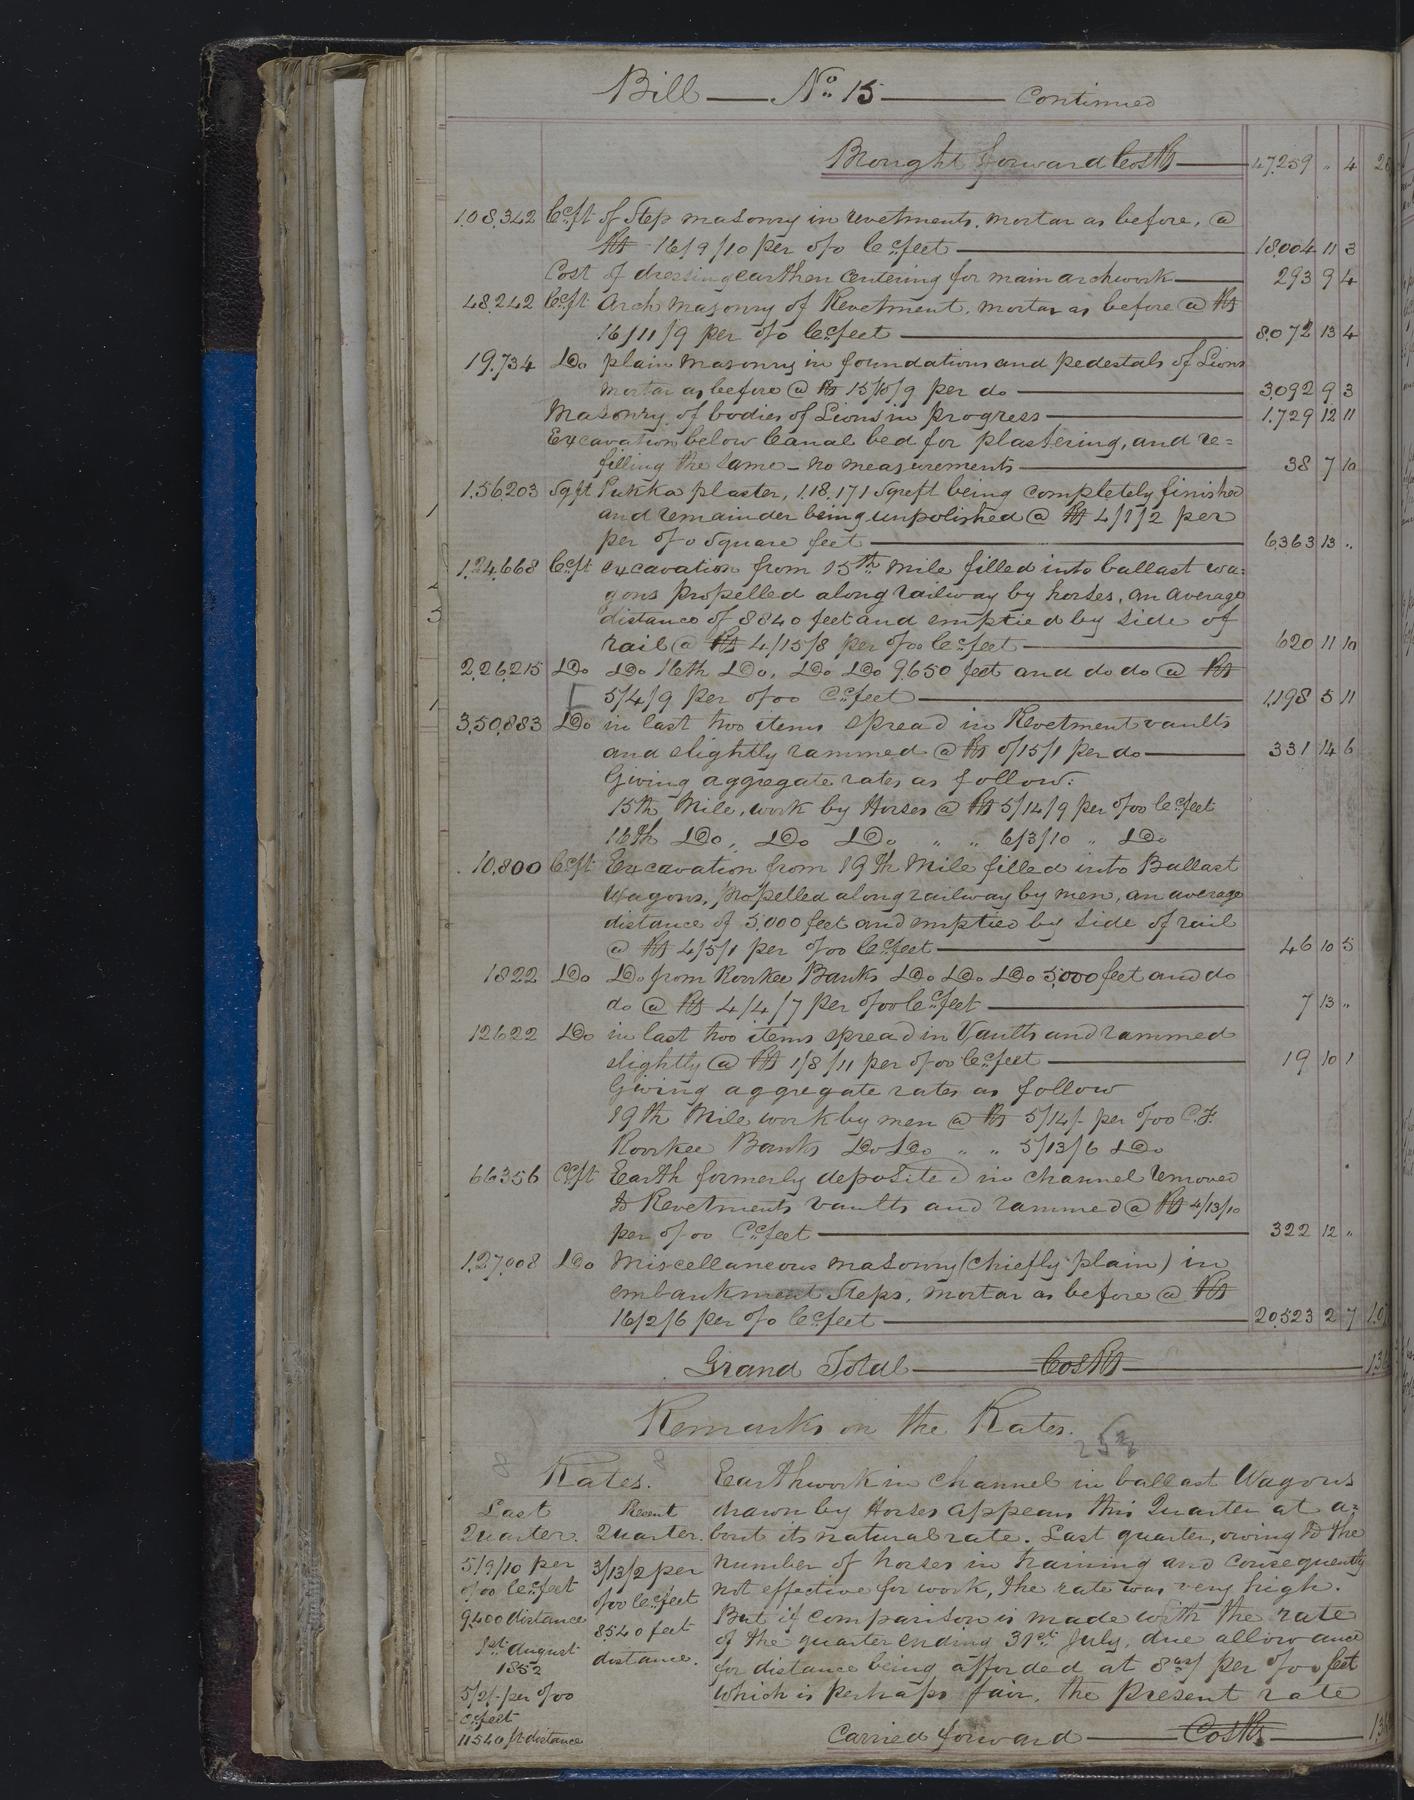 Bill — No. 15 — Continued
Brought forward Co's Rs — 47,259 " 4
108,342 Cc.ft of Step masonry in revetments, mortar as before, @
Rs 16/9/10 per o/o Cc.feet — 18,004 11 3
Cost of dressing earthen Centering for main archwork — 293 9 4
48,242 Cc.ft Arch masonry of Revetment, mortar as before @ Rs
16/11/9 per o/o Cc.feet — 8,072 13 4
19,734 Do plain masonry in foundations and pedestals of Lions
mortar as before @ Rs 15/10/9 per do — 3,092 9 3
Masonry of bodies of Lions in progress — 1,729 12 11
Excavation below Canal bed for plastering, and re=
filling the same – no measurements — 38 7 10
1,56,203 Sqft Pukka plaster, 1,18,171 Sqreft being completely finished
and remainder being unpolished @ Rs 4/1/2 per
per o/o Square feet — 6,363 13 "
1,24,668 Cc.ft excavation from 15th Mile filled into ballast wa=
gons propelled along railway by horses, an average
distance of 8840 feet and emptied by side of
rail @ Rs 4/15/8 per o/oo Cc.feet — 620 11 10
2,26,215 Do Do 16th Do, Do Do 9,650 feet and do do @ Rs
5/4/9 per o/oo Cc.feet — 1,198 5 11
3,50,883 Do in last two items spread in Revetment vaults
and slightly rammed @ Rs 0/15/1 per do — 331 14 6
Giving aggregate rates as follow:
15th Mile, work by Horses @ Rs 5/14/9 per o/oo Cc.feet
16th Do, Do Do " " 6/3/10 " Do
10,800 Cc.ft Excavation from 19th Mile filled into Ballast
Wagons, propelled along railway by men, an average
distance of 5,000 feet and emptied by side of rail
@ Rs 4/5/1 per o/oo Cc.feet — 46 10 5
1822 Do Do from Roorkee Banks Do Do Do 5,000 feet and do
do @ Rs 4/4/7 per o/oo Cc.feet — 7 13 "
12622 Do in last two items spread in Vaults and rammed
slightly @ Rs 1/8/11 per o/oo Cc.feet — 19 10 1
Giving aggregate rates as follow
19th Mile work by men @ Rs 5/14/- per o/oo C.F.
Roorkee Banks Do Do " " 5/13/6 Do
66356 Cc.ft Earth formerly deposited in channel removed
to Revetments vaults and rammed @ Rs 4/13/10
per o/oo Cc.feet — 322 12 "
1,27,008 Do Miscellaneous masonry (chiefly plain) in
embankment Steps, mortar as before @ Rs
16/2/6 per o/o Cc.feet — 20,523 2 7
Grand Total — Co's Rs
Remarks on the Rates.
Rates.
Last Quarter.
Recent Quarter.
5/9/10 per
o/oo Cc.feet
9,400 distance
1st August
1852
5/2/- per o/oo
Cc.feet
11540 ft distance
3/13/2 per
o/oo Cc.feet
8540 feet
distance.
Earthwork in channel in ballast Wagons
drawn by Horses appears this Quarter at a=
bout its natural rate. Last quarter, owing to the
number of horses in training and consequently
not effective for work, the rate was very high.
But if comparison is made with the rate
of the quarter ending 31st July, due allowance
for distance being afforded at 8as/ per o/oo feet
which is perhaps fair, the present rate
Carried forward — Co's Rs